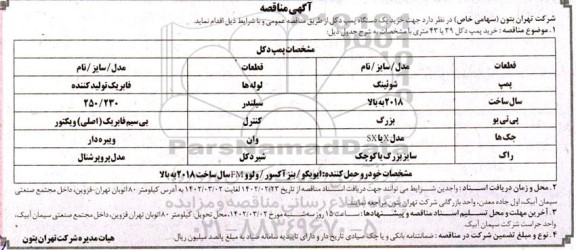 آگهی مناقصه
شرکت تهران بتون (سهامی خاص) در نظر دارد جهت خرید یک دستگاه پمپ دکل از طریق مناقصه عمومی و با شرایط ذیل اقدام نماید.
۱. موضوع مناقصه : خرید پمپ دکل ۳۹ یا ۴۳ متری با مشخصات به شرح جدول ذیل:
مشخصات پمپ دکل
قطعات مدل/سایز/نام قطعات مدل/سایز/نام
پمپ شوئینگ لوله‌ها فابریک تولید کننده
سال ساخت ۲۰۱۸ به بالا سیلندر ۲۵۰/۲۳۰
پی تی یو بزرگ کنترل بی سیم فابریک (اصلی) ویکتور
جک‌ها مدل X یا SX وان ویبره دار
راک سایز بزرگ یا کوچک شیر دکل مدل پروپرشنال
مشخصات خودرو حمل کننده: ایویکو/بنز آکسور/ولوو FM سال ساخت ۲۰۱۸ به بالا
۲. محل و زمان دریافت اسناد : واجدین شرایط می توانند جهت دریافت اسناد مناقصه از تاریخ ۱۴۰۲/۰۲/۲۳ لغایت ۱۴۰۲/۰۳/۰۲ به آدرس کیلومتر ۸۰ اتوبان تهران-قزوین، داخل مجتمع صنعتی
سیمان آبیک، اول جاده معدن، واحد بازرگانی شرکت تهران بتون مراجعه نمایند.
۳. آخرین مهلت و محل تسلیم اسناد مناقصه و پیشنهادها : ساعت ۱۵ روز سه شنبه مورخ ۱۴۰۲/۰۳/۰۲، محل تحویل کیلومتر ۸۰ اتوبان تهران قزوین، داخل مجتمع صنعتی سیمان آبیک،
واحد حراست شرکت سیمان آبیک.
۴. نوع و مبلغ تضمین شرکت در مناقصه : ضمانتنامه بانکی و یا چک صیادی تاریخ دار و دارای تاییدیه سامانه صیاد به مبلغ پانصد میلیون ریال
هیات مدیره شرکت تهران بتون